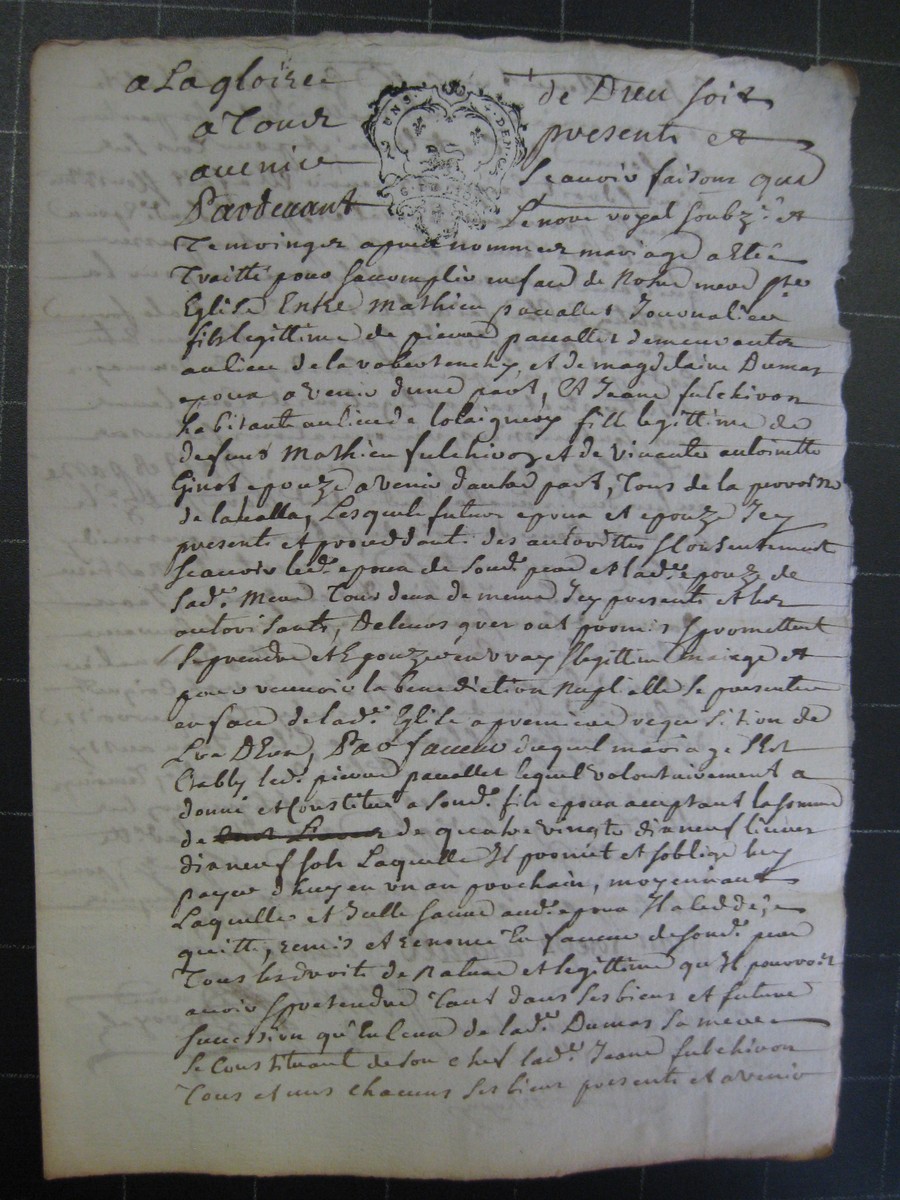 a La gloire de Dieu soit
a Tous presents et
avenir Scavoir faisons que
Pardevant Le nore royal soubz.é et
Temoinges apres nommees mariage a Eté
Traitté pour saccomplir en face de Notre mere ste
Eglise Entre Mathieu pacallet Journalier
fils legittime de pierre pacallet demeurants
au lieu de la et de magdelaine Dumas
epoux a venir dune part, Et Jeane fulchiron
habitante au lieu de fille legittime de
defunt Mathieu fulchiron et de vivante antoinette
Ginot epouze a venir dautre part, Tous de la parroisse
de Lesquels futurs epoux et epouze Icy
presents et proceddants des autorittes & Consentement
scavoir led. epoux de sond. pere et lad. epouze de
sad. Mere Tous deux de meme Icy presents et les
autorisants, De leurs grez ont promis & promettent
se prendre et Epouzer en vray & legittime mariage et
pour recevoir la benediction nuptialle se presenter
en face de lad. Eglise a premiere requisition de
L'un D'Eux, Par faveur duquel mariage s'Est
Etably led. pierre pacallet lequel volontairement a
donné et Constitué a sond. fils epoux acceptant la somme
de de quatre vingts dix neuf livres
dix neuf sols Laquelle Il promet et soblige luy
payer d'huy en un an prochain, moyennant
Laquelle et Icelle somme aud. epoux Il a ceddé,
quitté, remis et renoncé En faveur de sond. pere
Tous les droits de Nature et legittime qu'Il pourroit
avoir & pretendre Tant dans ses biens et future
succession qu'En Ceux de lad. Dumas sa mere
se Constituant de son chef lad. Jeane fulchiron
Tous et uns chacuns ses biens presents et avenir